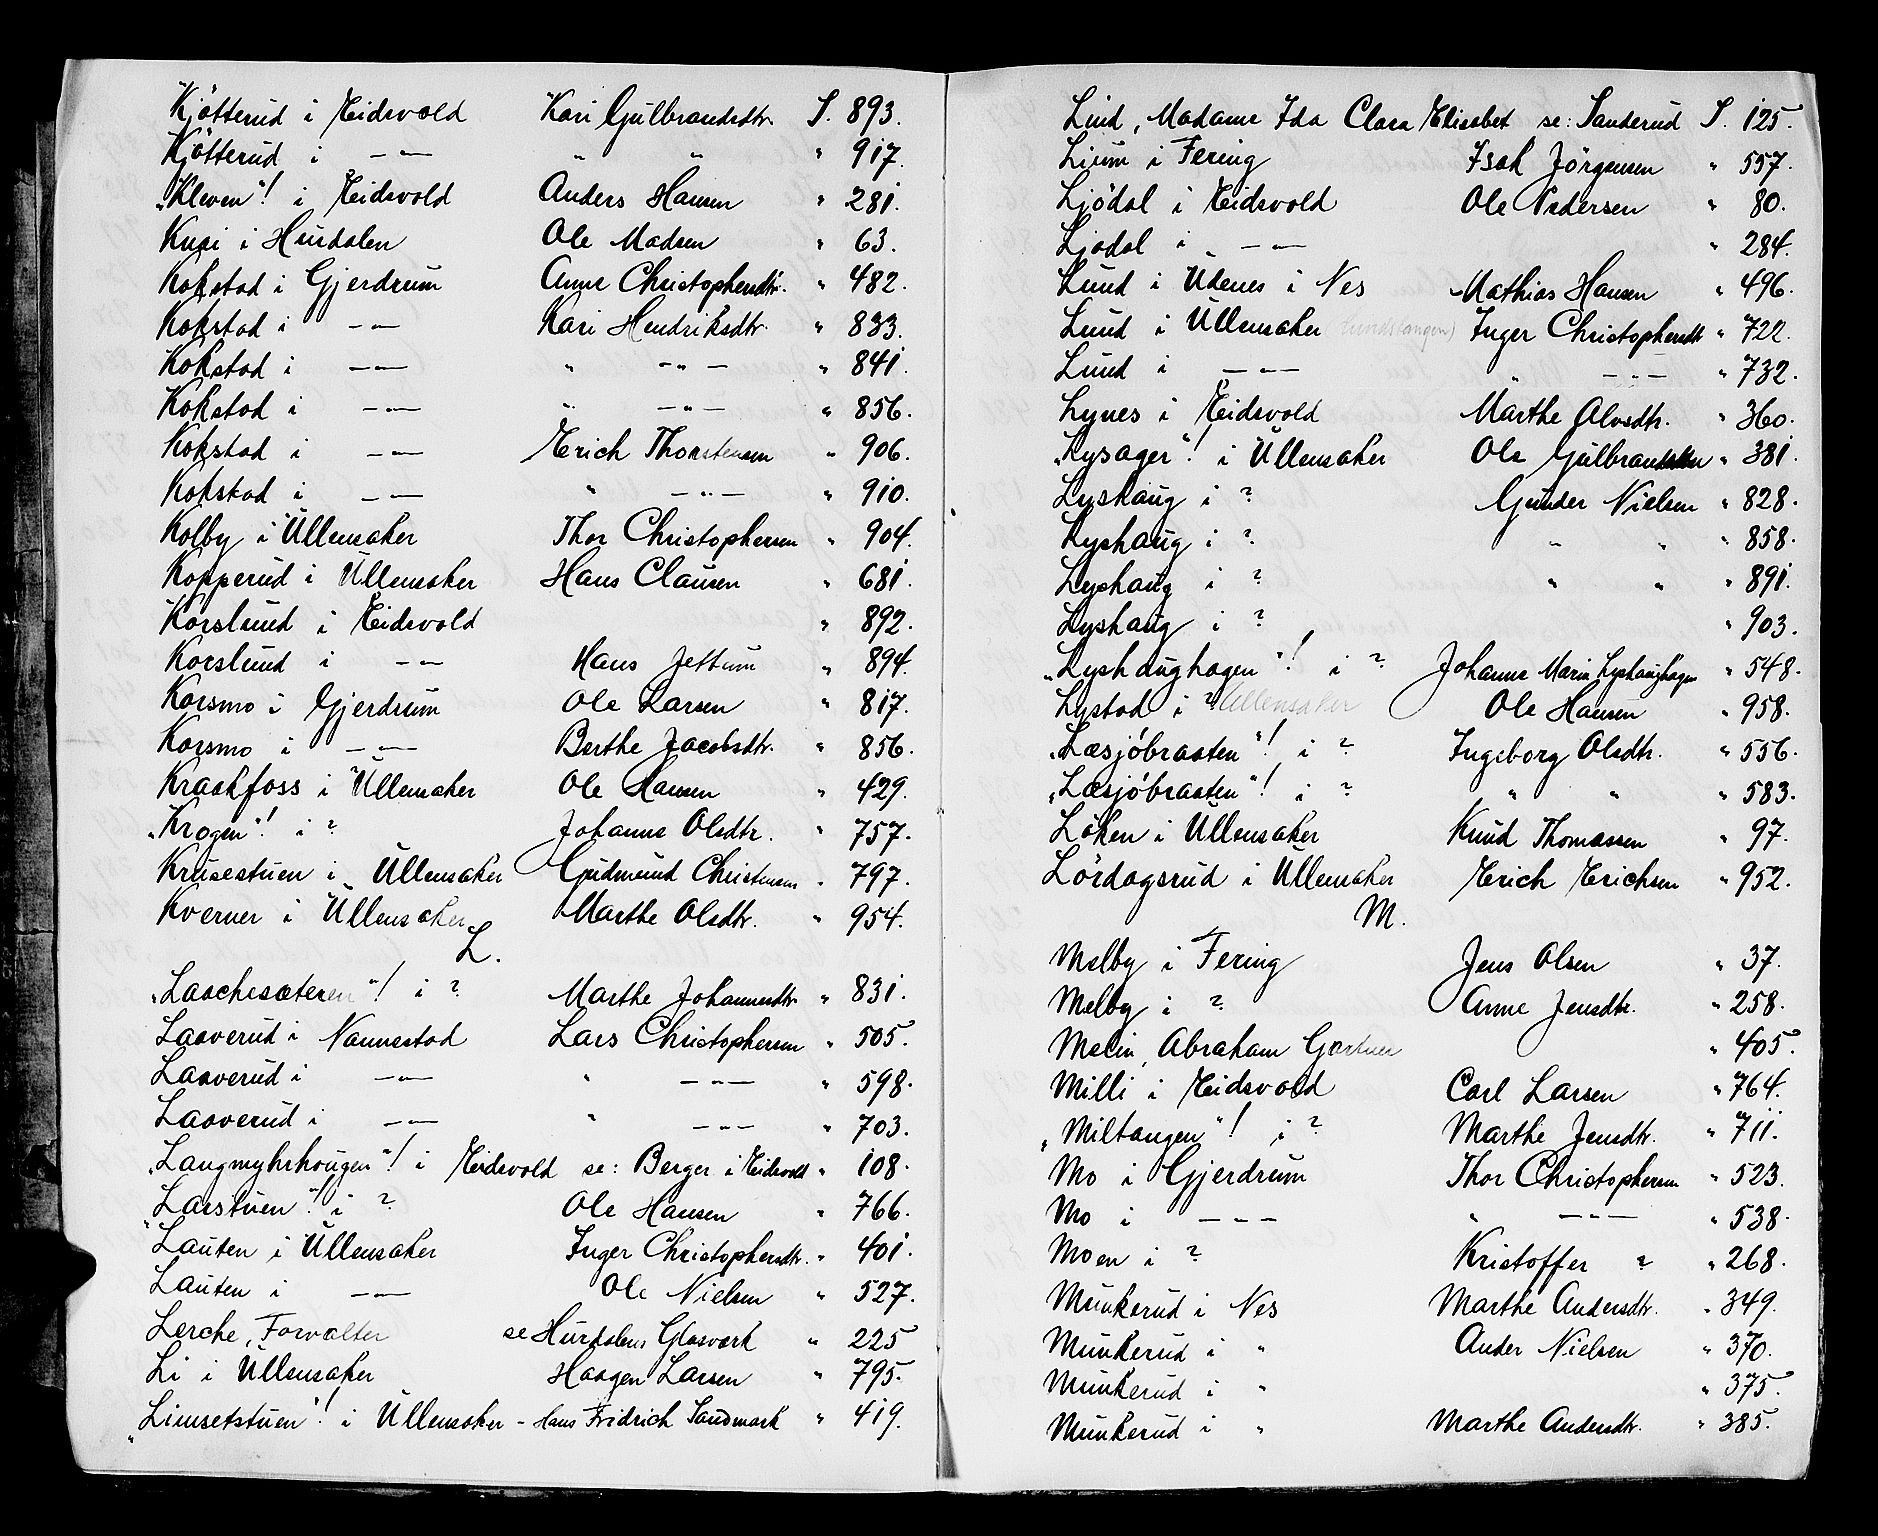 Kjötterud i Eidsvold Kari Gulbrandsdtr. S. 893.
Kjötterud i —"— " " " 917.
"Kleven"! i Eidsvold Anders Hansen " 281.
Knai i Hurdalen Ole Madsen " 63.
Kokstad i Gjerdrum Anne Christophersdtr. " 482.
Kokstad i —"— Kari Hendriksdtr. " 833.
Kokstad i —"— " —"— " 841.
Kokstad i —"— " —"— " 856.
Kokstad i —"— Erich Thorstensen " 906.
Kokstad i —"— " —"— " 910.
Kolby i Ullensaker Thor Christophersen " 904.
Kopperud i Ullensaker Hans Clausen " 681.
Korslund i Eidsvold " 892.
Korslund i —"— Hans Jettum " 894.
Korsmo i Gjerdrum Ole Larsen " 817.
Korsmo i —"— Berthe Jacobsdtr. " 856.
Kraakfoss i Ullensaker Ole Hansen " 429.
"Krogen"! i ? Johanne Olsdtr. " 757.
Krusestuen i Ullensaker Gudmund Christensen " 797.
Kverner i Ullensaker Marthe Olsdtr. " 954.
L.
"Laachesæteren"! i ? Marthe Johannesdtr. " 831.
Laaverud i Nannestad Lars Christophersen " 505.
Laaverud i —"— " —"— " 598.
Laaverud i —"— " —"— " 703.
"Langmyhrhougen"! i Eidsvold se: Berger i Eidsvold " 108.
"Larstuen"! i ? Ole Hansen " 766.
Lauten i Ullensaker Inger Christophersdtr. " 401.
Lauten i —"— Ole Nielsen " 527.
Lerche, Forvalter se Hurdalens Glasværk " 225
Li i Ullensaker Haagen Larsen " 795.
"Limsetstuen"! i Ullensaker - Hans Fridrich Sandmark " 419.
Lind, Madame Ida Clara Elisabet se: Sanderud S. 125.
Lium i Fering Isak Jörgensen " 557.
Ljödal i Eidsvold Ole Pedersen " 80.
Ljödal i —"— " 284.
Lund i Udenes i Nes Mathias Hansen " 496.
Lund i Ullensaker (Lundstangen) Inger Christophersdtr " 722.
Lund i —"— " —"— " 732.
Lynes i Eidsvold Marthe Alvsdtr. " 360.
"Lysager"! i Ullensaker Ole Gulbrandsen " 381.
Lyshaug i ? Gunder Nielsen " 828.
Lyshaug i ? " " " 858.
Lyshaug i ? " " " 891.
Lyshaug i ? " 903.
"Lyshaughagen"! i ? Johanne Marie Lyshaughagen " 548.
Lystad i ? Ullensaker Ole Hansen " 958.
"Læsjöbraaten"! i ? Ingeborg Olsdtr. " 556.
"Læsjöbraaten"! i ? " " " 583.
Löken i Ullensaker Knud Thomassen " 97.
Lördagsrud i Ullensaker Erich Erichsen " 952.
M.
Melby i Fering Jens Olsen " 37.
Melby i ? Anne Jensdtr. " 258.
Melin, Abraham Gartner " 405.
Milli i Eidsvold Carl Larsen " 764.
"Miltangen"! i ? Marthe Jensdtr. " 711.
Mo i Gjerdrum Thor Christophersen " 523.
Mo i — — — " — — — " 538.
Moen i ? Kristoffer ? " 268.
Munkerud i Nes Marthe Andersdtr. " 349.
Munkerud i " Ander Nielsen " 370.
Munkerud i " " 375.
Munkerud i " Marthe Andersdtr. " 385.